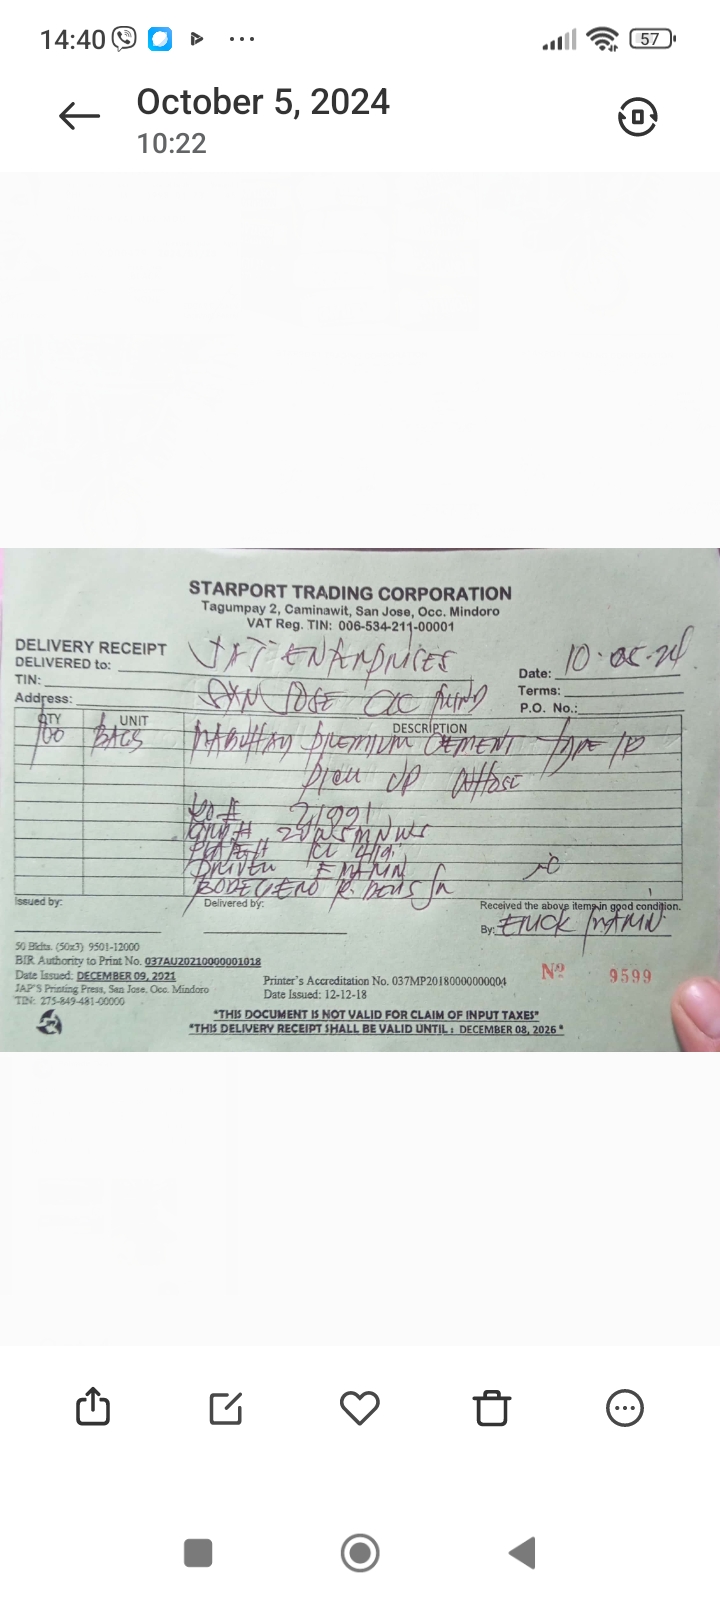 14:40
57
October 5, 2024
10:22
STARPORT TRADING CORPORATION
Tagumpay 2, Caminawit, San Jose, Occ. Mindoro
VAT Reg. TIN: 006-534-211-00001
DELIVERY RECEIPT
DELIVERED to: ENTERPRISES
Date: 10-05-24
TIN:
Terms:
Address: SAN JOSE OCC MINDO
P.O. No.:
QTY UNIT DESCRIPTION
BAGS MABUHAY PREMIUM CEMENT TYPE 1P
PICK UP
21991
PLATE#
DRIVER
BODEGERO R.
Issued by:
Delivered by:
Received the above items in good condition.
By:
50 Bklts. (50x3) 9501-12000
BIR Authority to Print No. 037AU20210000001018
Date Issued: DECEMBER 09, 2021
JAP'S Printing Press, San Jose, Occ. Mindoro
TIN: 275-849-481-00000
Printer's Accreditation No. 037MP20180000000004
Date Issued: 12-12-18
Nº 9599
"THIS DOCUMENT IS NOT VALID FOR CLAIM OF INPUT TAXES"
"THIS DELIVERY RECEIPT SHALL BE VALID UNTIL : DECEMBER 08, 2026"